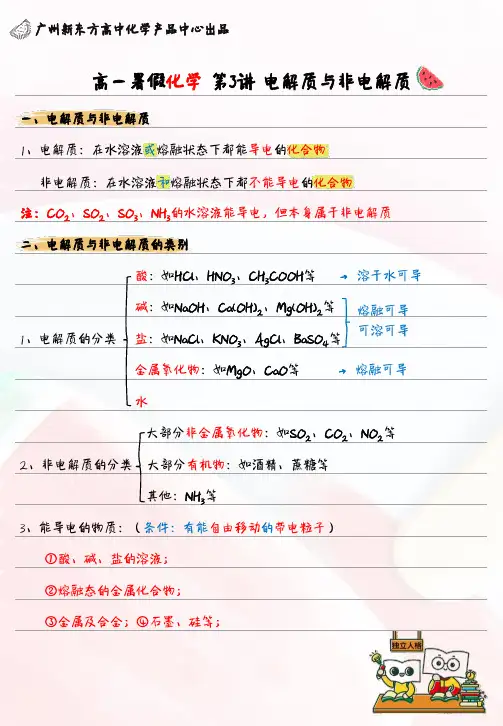 广州新东方高中化学产品中心出品
高一暑假化学 第3讲 电解质与非电解质
一、电解质与非电解质
1、电解质：在水溶液或熔融状态下都能导电的化合物
非电解质：在水溶液和熔融状态下都不能导电的化合物
注：CO₂、SO₂、SO₃、NH₃的水溶液能导电，但本身属于非电解质
二、电解质与非电解质的类别
酸：如HCl、HNO₃、CH₃COOH等 → 溶于水可导
碱：如NaOH、Ca(OH)₂、Mg(OH)₂等 熔融可导
1、电解质的分类 盐：如NaCl、KNO₃、AgCl、BaSO₄等 可溶可导
金属氧化物：如MgO、CaO等 → 熔融可导
水
大部分非金属氧化物：如SO₂、CO₂、NO₂等
2、非电解质的分类 大部分有机物：如酒精、蔗糖等
其他：NH₃等
3、能导电的物质：（条件：有能自由移动的带电粒子）
①酸、碱、盐的溶液；
②熔融态的金属化合物；
③金属及合金；④石墨、硅等；
独立人格